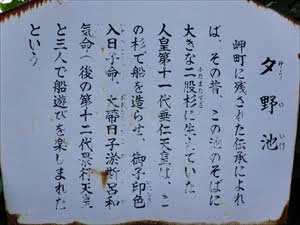 夕野池
ゆうのいけ
岬町に残された伝承によれ
ば、その昔、この池のそばに
大きな二股杉に生えていた
ふたまたすぎ
人皇第十一代垂仁天皇は、こ
の杉で船を造らせ、御子印色
入日子命、大帯日子淤斯呂和
気命(後の第十二代景行天皇)
と三人で船遊びを楽しまれた
という